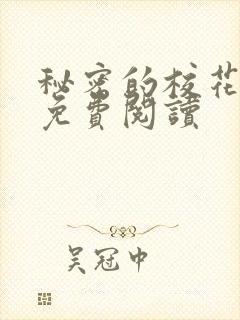 秘密的校花
免費閱讀
吴冠中